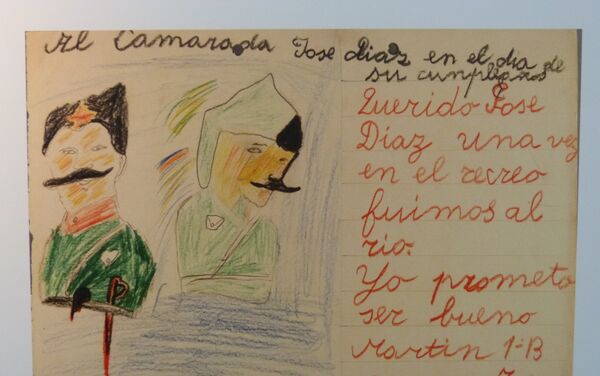 Al Camarada Jose diaz en el dia de
su cumpleaños
Querido Jose
Diaz una vez
en el recreo
fuimos al
rio.
Yo prometo
ser bueno
Martin 1-B